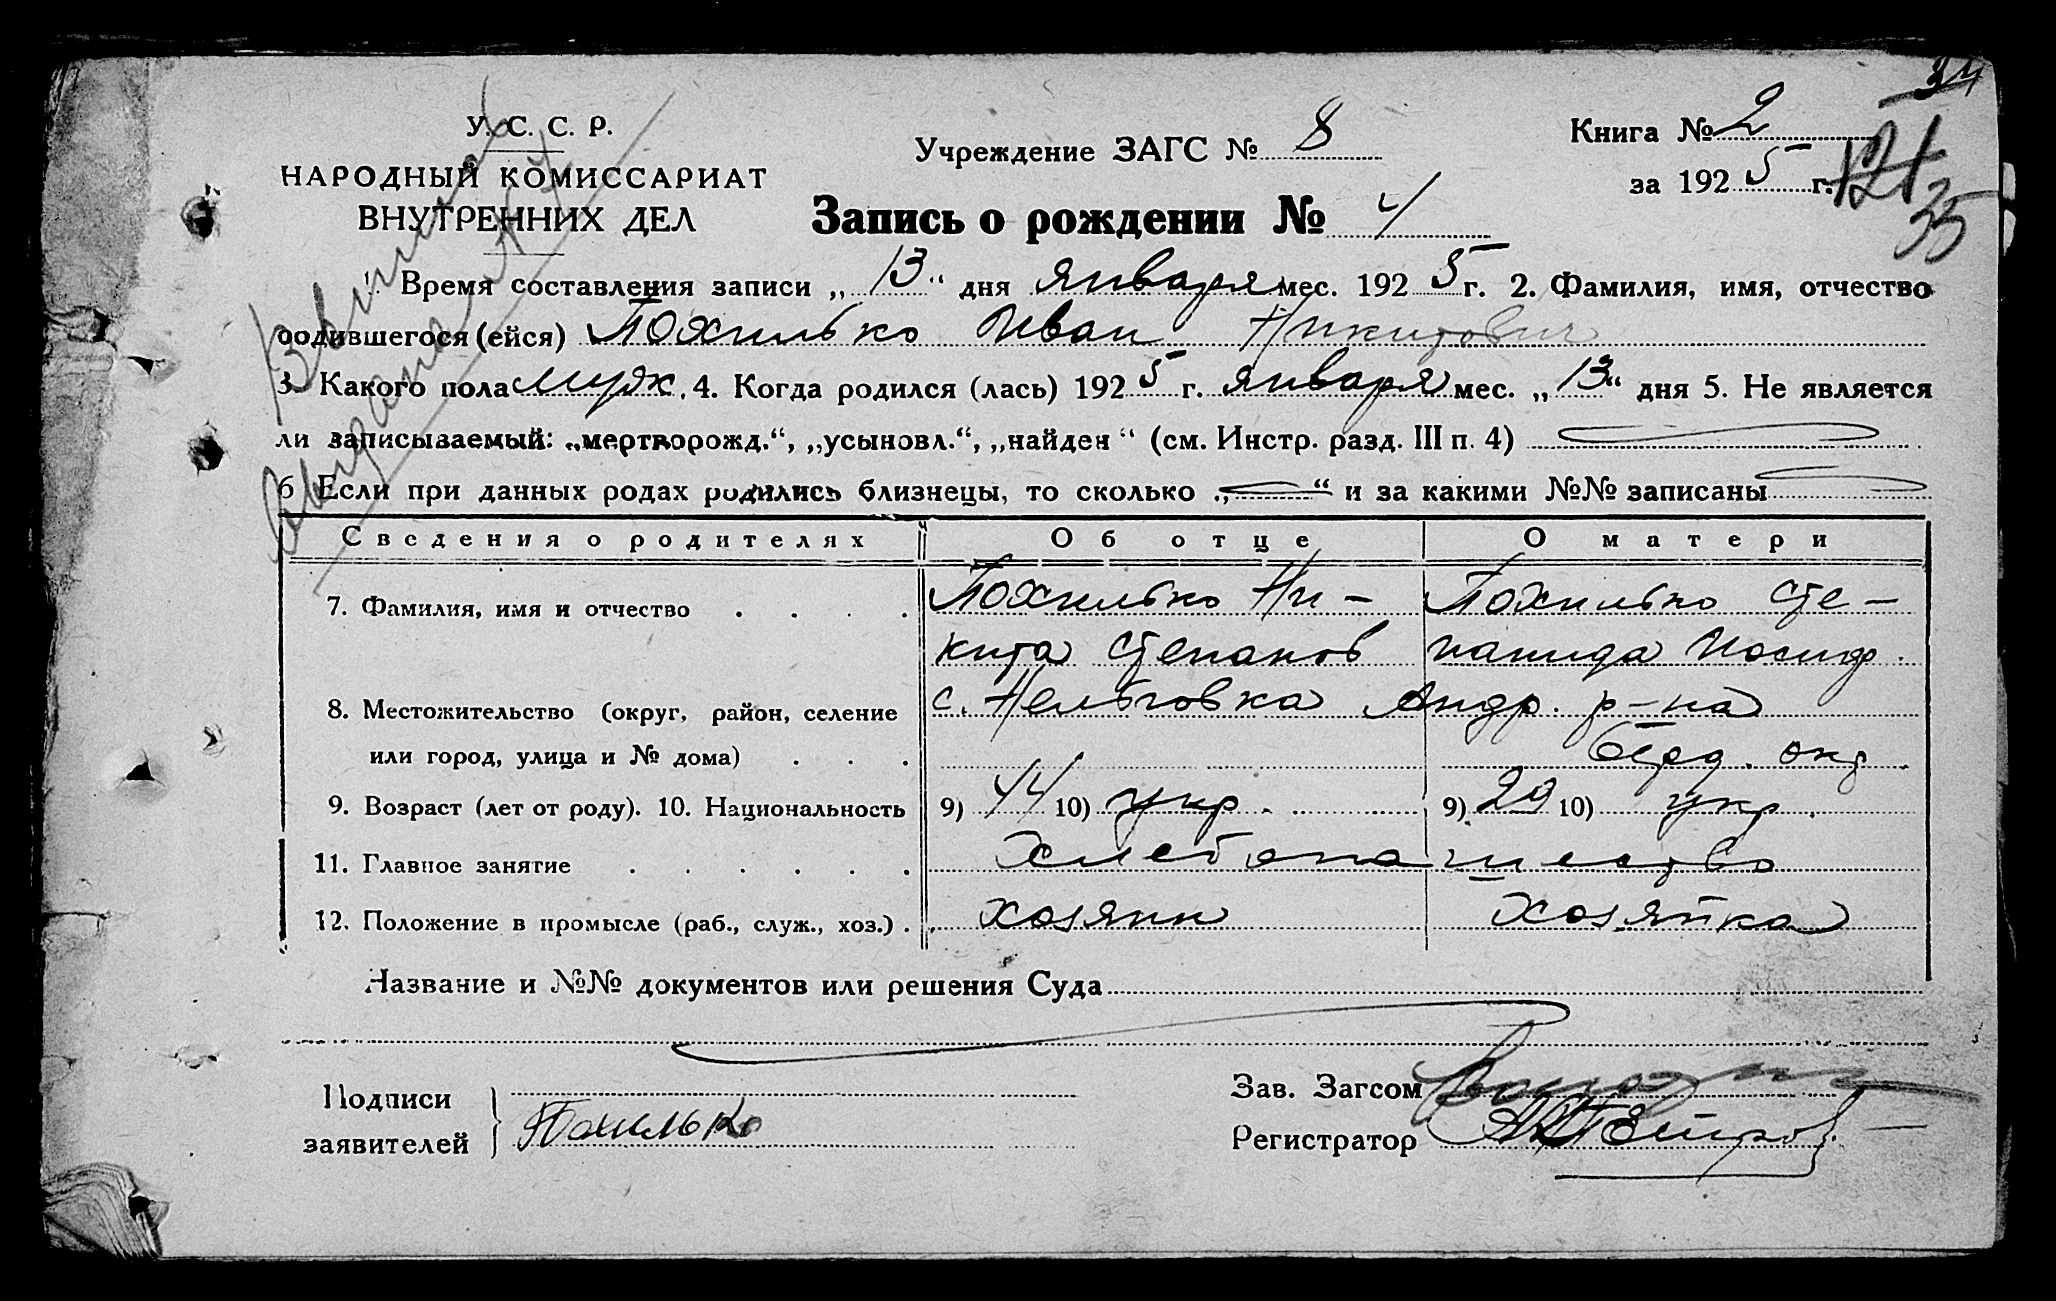 34
У. С. С. Р.
НАРОДНЫЙ КОМИССАРИАТ
ВНУТРЕННИХ ДЕЛ
Учреждение ЗАГС № 8
Книга № 2
за 1925 г.
121
35
Запись о рождении № 4
1. Время составления записи „13“ дня января мес. 1925 г. 2. Фамилия, имя, отчество
родившегося (ейся) Похилько Иван Никитович
3. Какого пола муж. 4. Когда родился (лась) 1925 г. января мес. „13“ дня 5. Не является
ли записываемый: „мертворожд.“, „усыновл.“, „найден“ (см. Инстр. разд. III п. 4)
6 Если при данных родах родились близнецы, то сколько „ “ и за какими №№ записаны
Сведения о родителях Об отце О матери
7. Фамилия, имя и отчество . . . . Похилько Ни- Похилько Сте-
кита Степанов нанида Иосиф.
8. Местожительство (округ, район, селение с. Нельговка Андр. р-на
или город, улица и № дома) . . . Берд. окр.
9. Возраст (лет от роду). 10. Национальность 9) 44 10) укр. 9) 29 10) укр.
11. Главное занятие . . . . . . Хлебопашество
12. Положение в промысле (раб., служ., хоз.) . . хозяин хозяйка
Название и №№ документов или решения Суда
Подписи
заявителей
Похилько
Зав. Загсом
Регистратор Петров